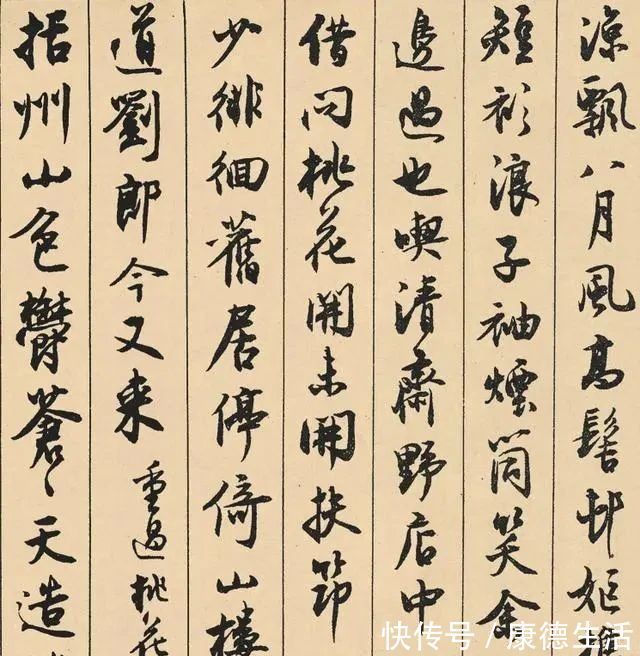 涼飄八月風高髻邨姬
短衫浪子袖煙筒笑余
邊過也喫清齋野店中
借问桃花開未開扶筇
少徘徊舊居停倚山樓
道劉郎今又来重過桃花
括州山色鬱蒼〻天造
快传号 / 康德生活